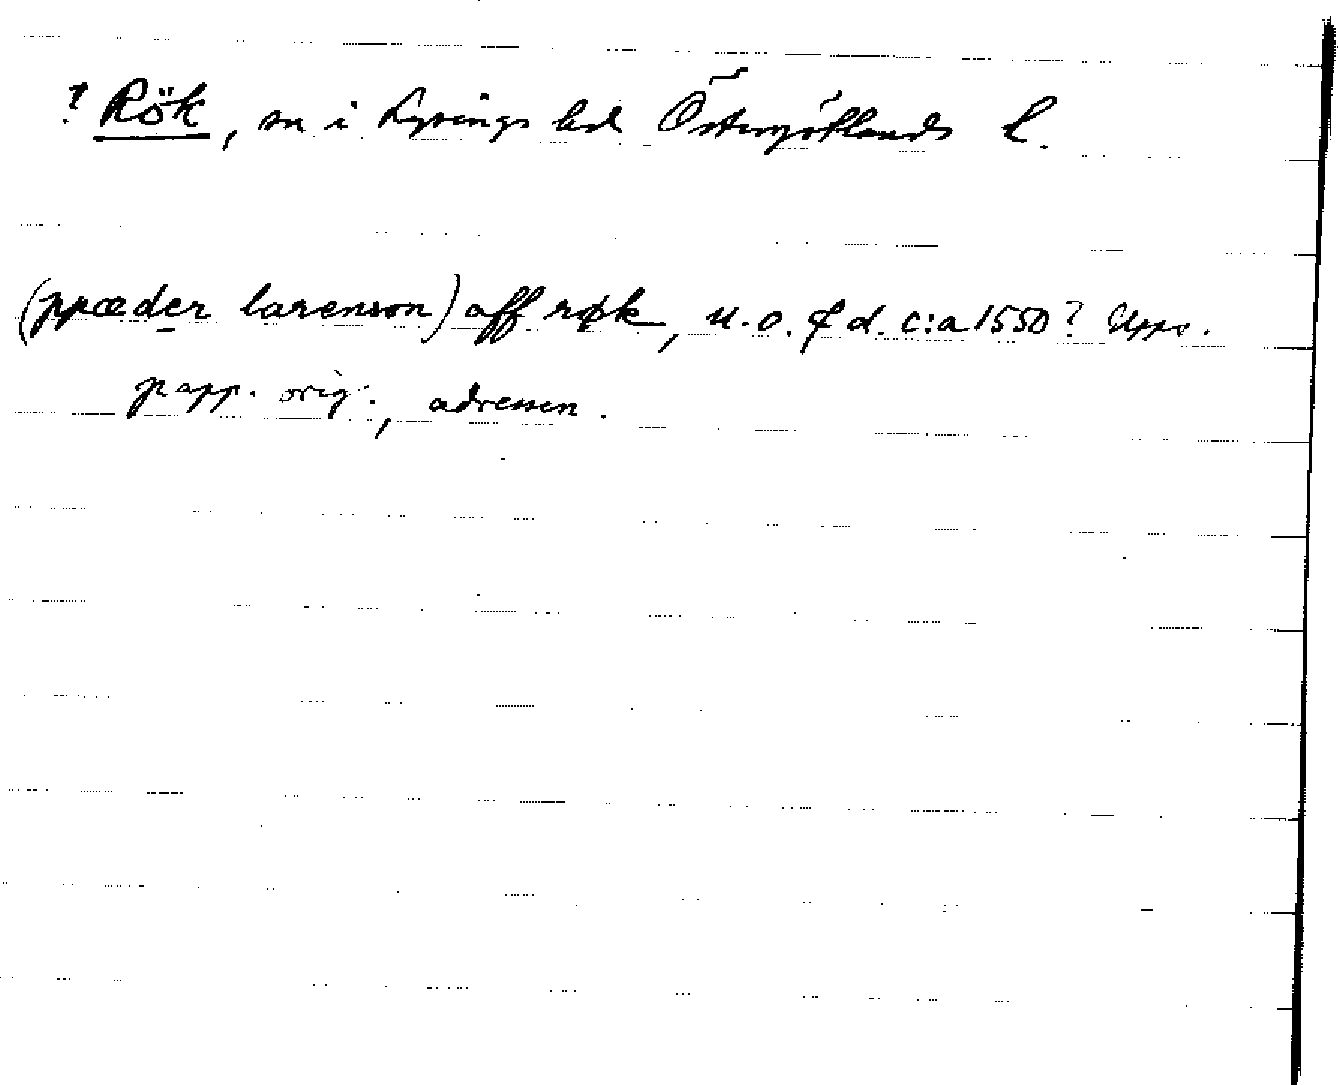 ? Rök, sn i Lysings hd Östergötlands l.
(ppæder larenson) aff røk, u. o. & d. c:a 1550? Upps.
papp. orig., adressen.